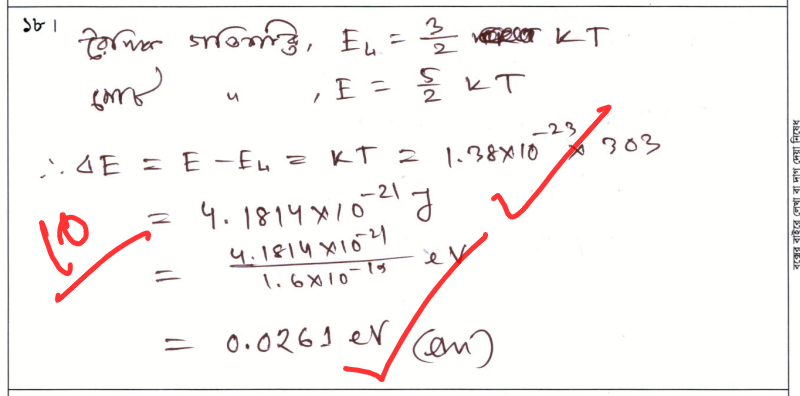 ১৮।
রৈখিক গতিশক্তি, E₄ = 3/2 KT
মোট " , E = 5/2 KT
∴ ΔE = E - E₄ = KT = 1.38×10⁻²³ × 303
= 4.1814×10⁻²¹ J
10
= 4.1814×10⁻²¹ / 1.6×10⁻¹⁹ eV
= 0.0261 eV (Ans)
বক্সের বাইরে লেখা বা দাগ দেয়া নিষেধ